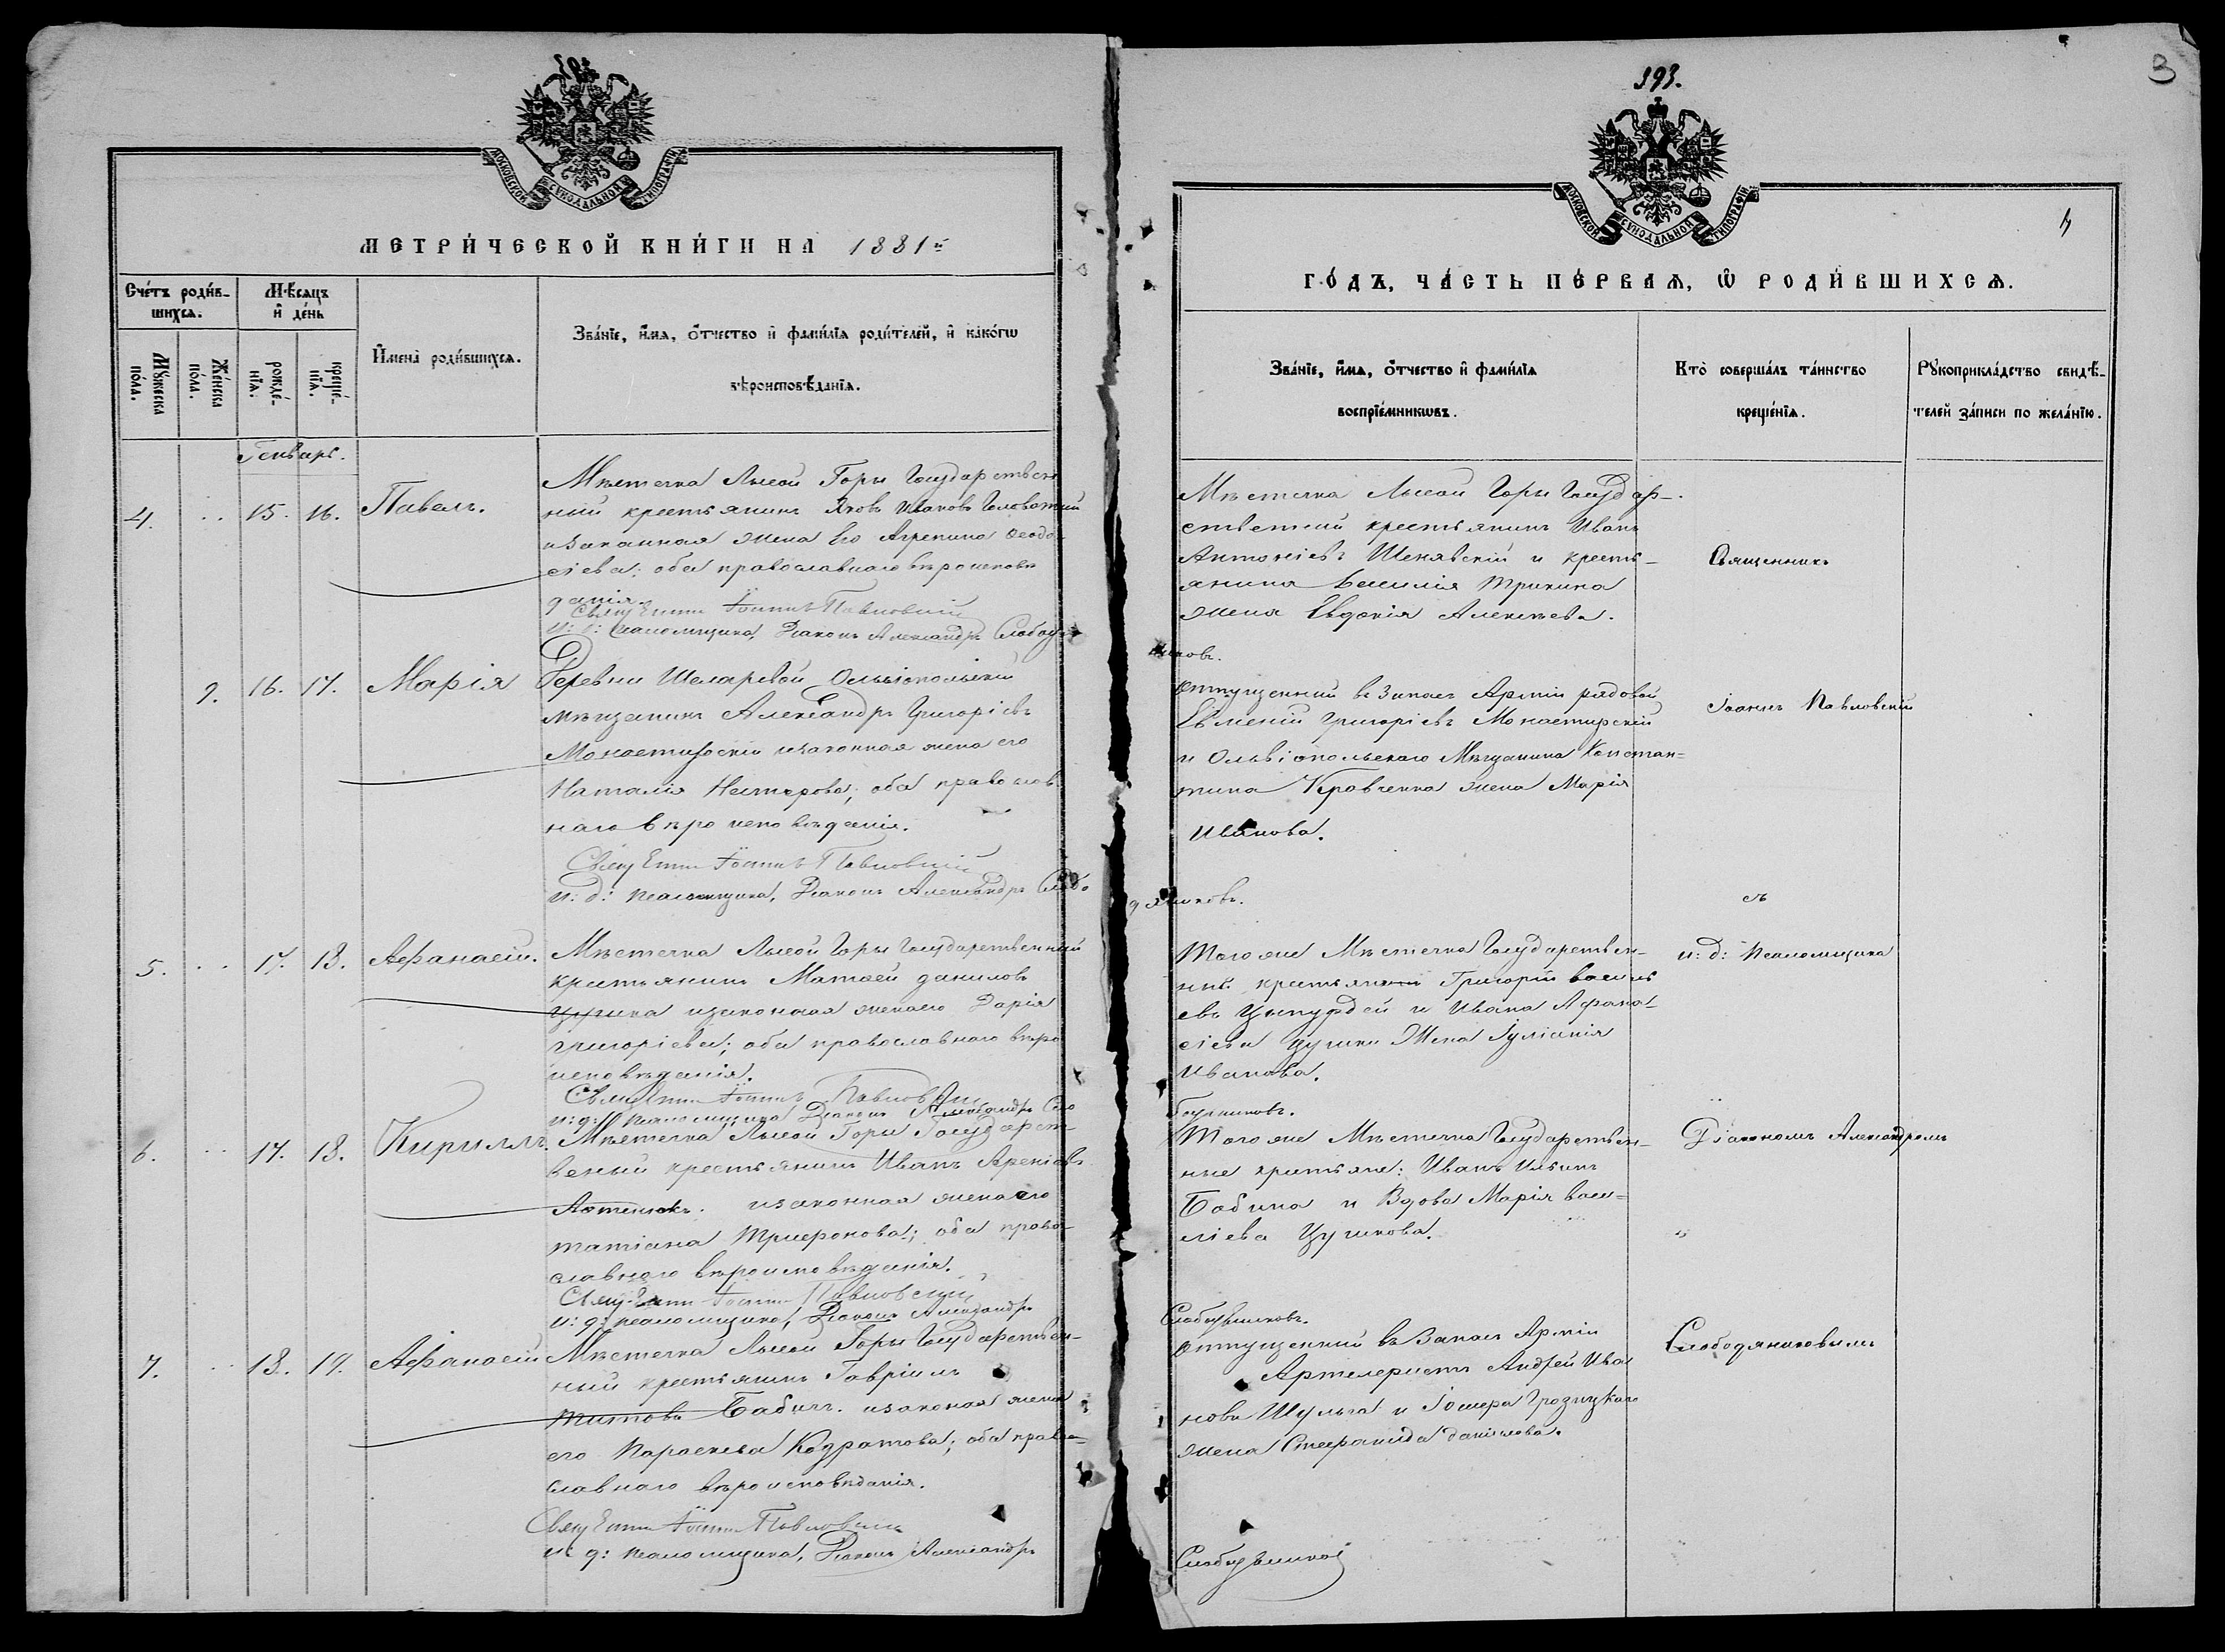 393.
3
4
МОСКОВСКОЙ СѴНОДАЛЬНОЙ ТИПОГРАФІИ
МОСКОВСКОЙ СѴНОДАЛЬНОЙ ТИПОГРАФІИ
МЕТРИ́ЧЕСКОЙ КНИ́ГИ НА 1881й
Сче́тъ роди́вшихсѧ.
Мѣ́сѧцъ и҆ де́нь
И҆мена̀ роди́вшихсѧ.
Зва́нїе, и҆́мѧ, ѻ҆́тчество и҆ фами́лїѧ роди́телей, и҆ како́гѡ
вѣроисповѣ́данїѧ.
Мꙋ́жеска по́ла.
Же́нска по́ла.
рожде́нїѧ.
креще́нїѧ.
Генварь.
4. 15. 16. Павелъ.
Мѣстечка Лысой Горы Государствен
ный крестьянинъ Яковъ Ивановъ Головатый
изаконная жена его Агрепина Ѳеодо
сіева; оба православнаго вѣроисповѣ
данія.
Священникъ Іоаннъ Павловскій
и: д: псаломщика, Діаконъ Александръ Слободя
9. 16. 17. Марія
Деревни Шеларевой Ольвіопольскій
мѣщанинъ Александръ Григоріевъ
Монастирскій изаконная жена его
Наталія Нестерова; оба православ
наго вѣроисповѣданія.
Священникъ Іоаннъ Павловскій
и: д: псаломщика, Діаконъ Александръ Слобо
5. 17. 18. Афанасій.
Мѣстечка Лысой Горы Государственный
крестьянинъ Матѳей Даниловъ
Цушка изаконая женаего Дарія
Григоріева; оба православнаго вѣро
исповѣданія.
Священникъ Іоаннъ Павловскій
и: д: псаломщика Діаконъ Александръ Сло
6. 17. 18. Кириллъ.
Мѣстечка Лысой Горы Государст
веный крестьянинъ Иванъ
изаконная жена его
Татіана Трифонова; оба право
славнаго вѣроисповѣданія.
Священникъ Іоаннъ Павловскій
и: д: псаломщика, Діаконъ Александръ
7. 18. 19. Афанасій
Мѣстечка Лысой Горы Государствен-
ный крестьянинъ Гавріилъ
Титовъ Бабичъ. изаконая жена
его Параскева Кодратова; оба право-
славнаго вѣроисповѣданія.
Священникъ Іоаннъ Павловскій
и: д: псаломщика, Діаконъ Александръ
ГО́ДЪ, ЧА́СТЬ ПЕ́РВАѦ, Ѡ҆ РОДИ́ВШИХСѦ.
Зва́нїе, и҆́мѧ, ѻ҆́тчество и҆ фами́лїѧ
воспрїе́мникѡвъ.
Кто̀ соверша́лъ та́инство
креще́нїѧ.
Рꙋкоприкла́дство свидѣ́-
телей за́писи по жела́нїю.
Мѣстечка Лысой Горы Государ-
ственный крестьянинъ Иванъ
Антоніевъ Шенявскій и кресть-
янина Василія
жена Евдокія Алексѣева.
никовъ.
Отпущенный в Запасъ Арміи рядовой
Евменій Григоріевъ Монастирскій
и Ольвіопольскаго Мѣщанина Констан=
тина Кравченка жена Марія
Иванова.
дяниковъ.
Того же Мѣстечка Государствен-
крестьянинъ Григорій Василь
евъ и Ивана Афана-
сіева Цушки Жена Іуліанія
Иванова.
бодяниковъ.
Того же Мѣстечка Государствен-
ные крестьяне: Иванъ Ильинъ
Бабина и Вдова Марія Васи=
ліева Цушкова.
Слободяниковъ.
Отпущенный въ Запасъ Арміи
Артелеристъ Андрей Ива
новъ Шульга и
жена Стефанида Данилова.
Слободяниковъ
Священникъ
Іоаннъ Павловскій
съ
и: д: Псаломщика
Діакономъ Александромъ
Слободяниковымъ